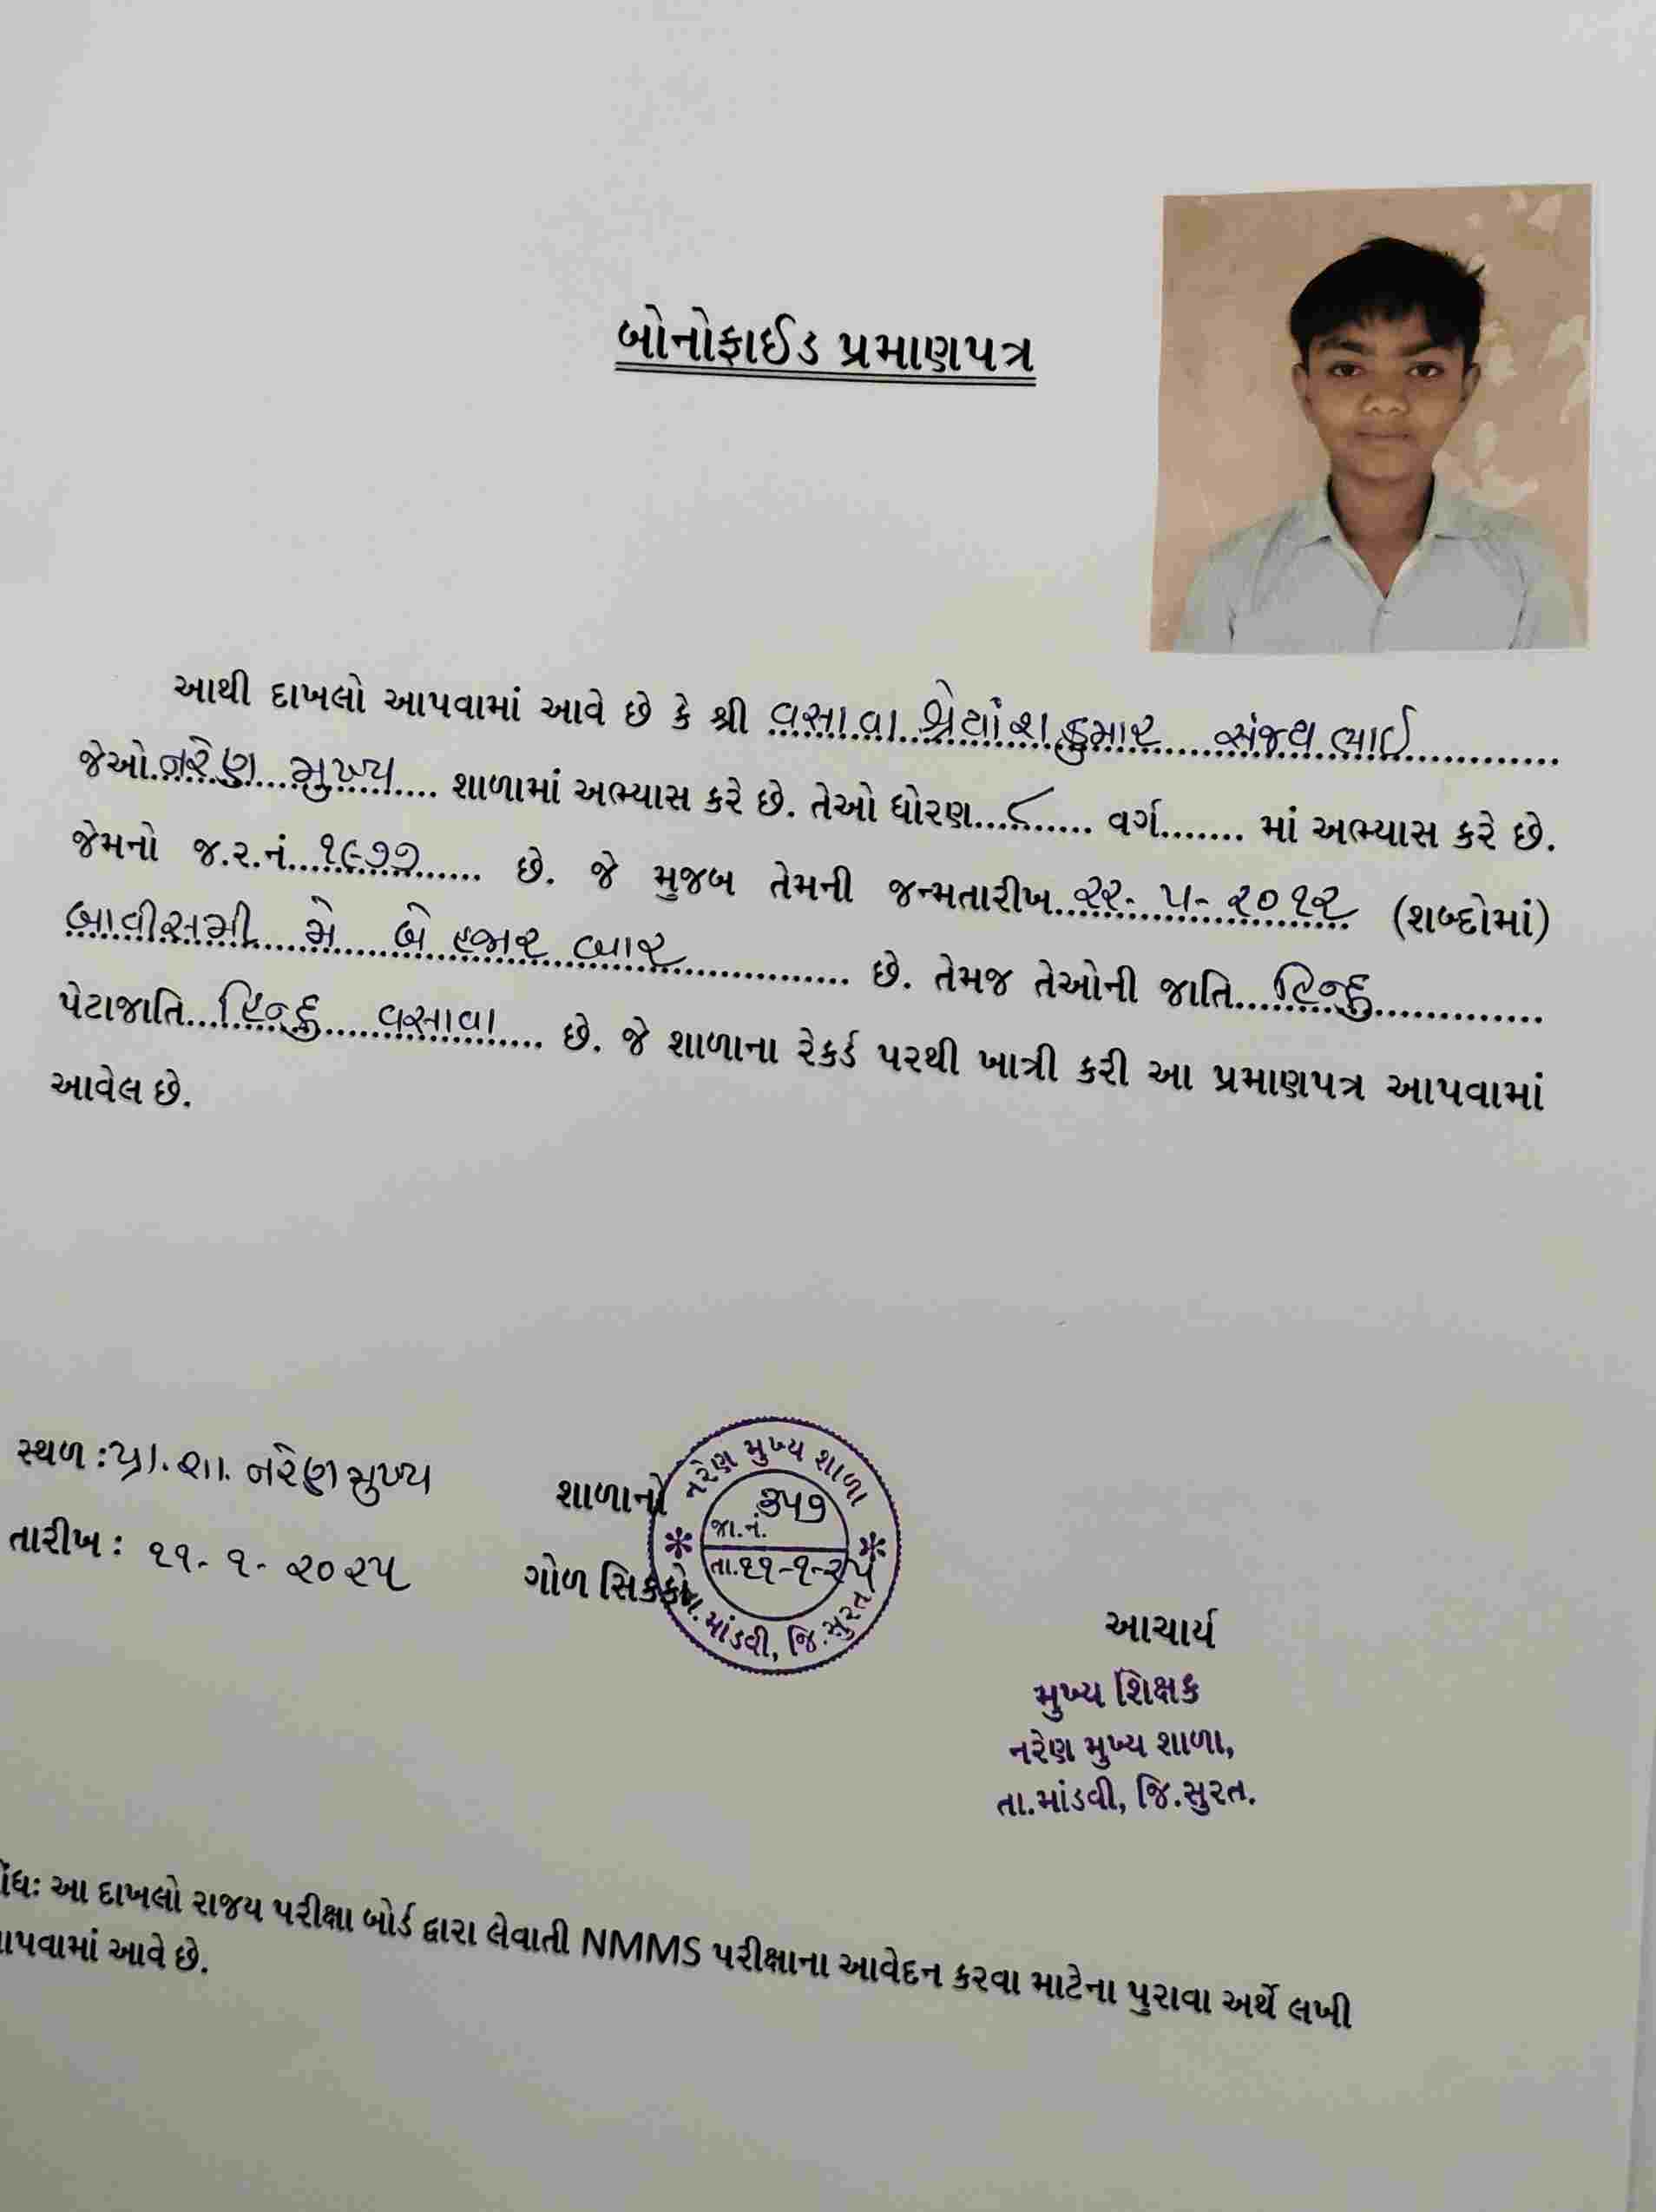 બોનોફાઈડ પ્રમાણપત્ર
આથી દાખલો આપવામાં આવે છે કે શ્રી વસાવા શ્રેયાંશકુમાર સંજયભાઈ
જેઓ નરેણ મુખ્ય શાળામાં અભ્યાસ કરે છે. તેઓ ધોરણ ૮ વર્ગ....... માં અભ્યાસ કરે છે.
જેમનો જ.ર.નં. ૧૯૭૭ છે. જે મુજબ તેમની જન્મતારીખ ૨૨-૫-૨૦૧૨ (શબ્દોમાં)
બાવીસમી મે બે હજાર બાર છે. તેમજ તેઓની જાતિ હિન્દુ
પેટાજાતિ હિન્દુ વસાવા છે. જે શાળાના રેકર્ડ પરથી ખાત્રી કરી આ પ્રમાણપત્ર આપવામાં
આવેલ છે.
સ્થળ : પ્રા. શા. નરેણ મુખ્ય
તારીખ : ૧૧-૧-૨૦૨૫
શાળાનો
ગોળ સિક્કો
નરેણ મુખ્ય શાળા
જા.નં. ૩૫૭
તા.૧૧-૧-૨૫
માંડવી, જિ.સુરત
આચાર્ય
મુખ્ય શિક્ષક
નરેણ મુખ્ય શાળા,
તા.માંડવી, જિ.સુરત.
ોંધઃ આ દાખલો રાજય પરીક્ષા બોર્ડ દ્વારા લેવાતી NMMS પરીક્ષાના આવેદન કરવા માટેના પુરાવા અર્થે લખી
ાપવામાં આવે છે.